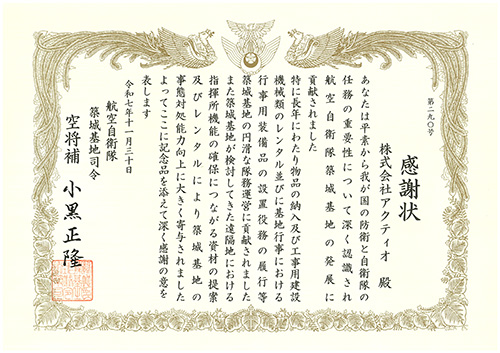 第二九〇号
感謝状
株式会社アクティオ 殿
あなたは平素から我が国の防衛と自衛隊の
任務の重要性について深く認識され
航空自衛隊築城基地の発展に
貢献されました
特に長年にわたり物品の納入及び工事用建設
機械類のレンタル並びに基地行事における
行事用装備品の設置役務の履行等
築城基地の円滑な隊務運営に貢献されました
また築城基地が検討してきた遠隔地における
指揮所機能の確保につながる資材の提案
及びレンタルにより築城基地の
事態対処能力向上に大きく寄与されました
よってここに記念品を添えて深く感謝の意を
表します
令和七年十一月三十日
航空自衛隊
築城基地司令
空将補 小黒正隆